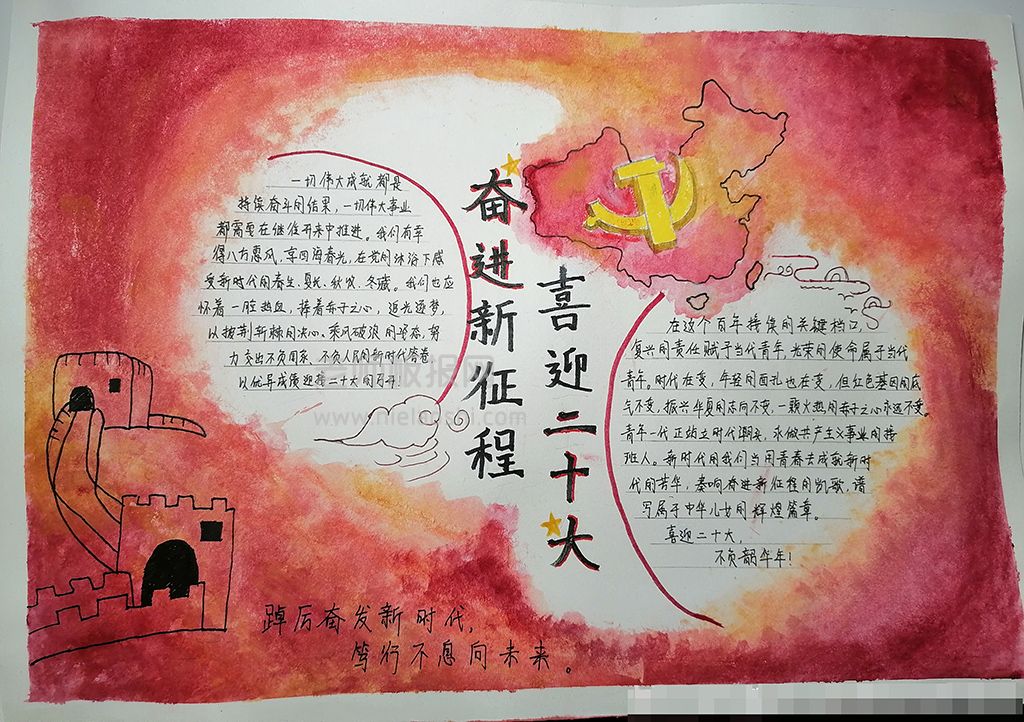 奋进新征程
喜迎二十大
一切伟大成就都是
持续奋斗的结果，一切伟大事业
都需要在继往开来中推进。我们有幸
得八方惠风，享四海春光，在党的沐浴下感
受新时代的春生、夏长、秋收、冬藏。我们也应
怀着一腔热血，捧着赤子之心，追光逐梦，
以披荆斩棘的决心。乘风破浪的姿态，努
力交出不负国家、不负人民的新时代答卷
以优异成绩迎接二十大的召开！
在这个百年接续的关键档口，
复兴的责任赋予当代青年，光荣的使命属于当代
青年。时代在变，年轻的面孔也在变，但红色基因的底
气不变，振兴华夏的志向不变，一颗火热的赤子之心永远不变。
青年一代正站立时代潮头，永做共产主义事业的接
班人。新时代的我们当用青春去成就新时
代的芳华，奏响奋进新征程的凯歌，谱
写属于中华儿女的辉煌篇章。
喜迎二十大，
不负韶华年！
踔厉奋发新时代，
笃行不息向未来。